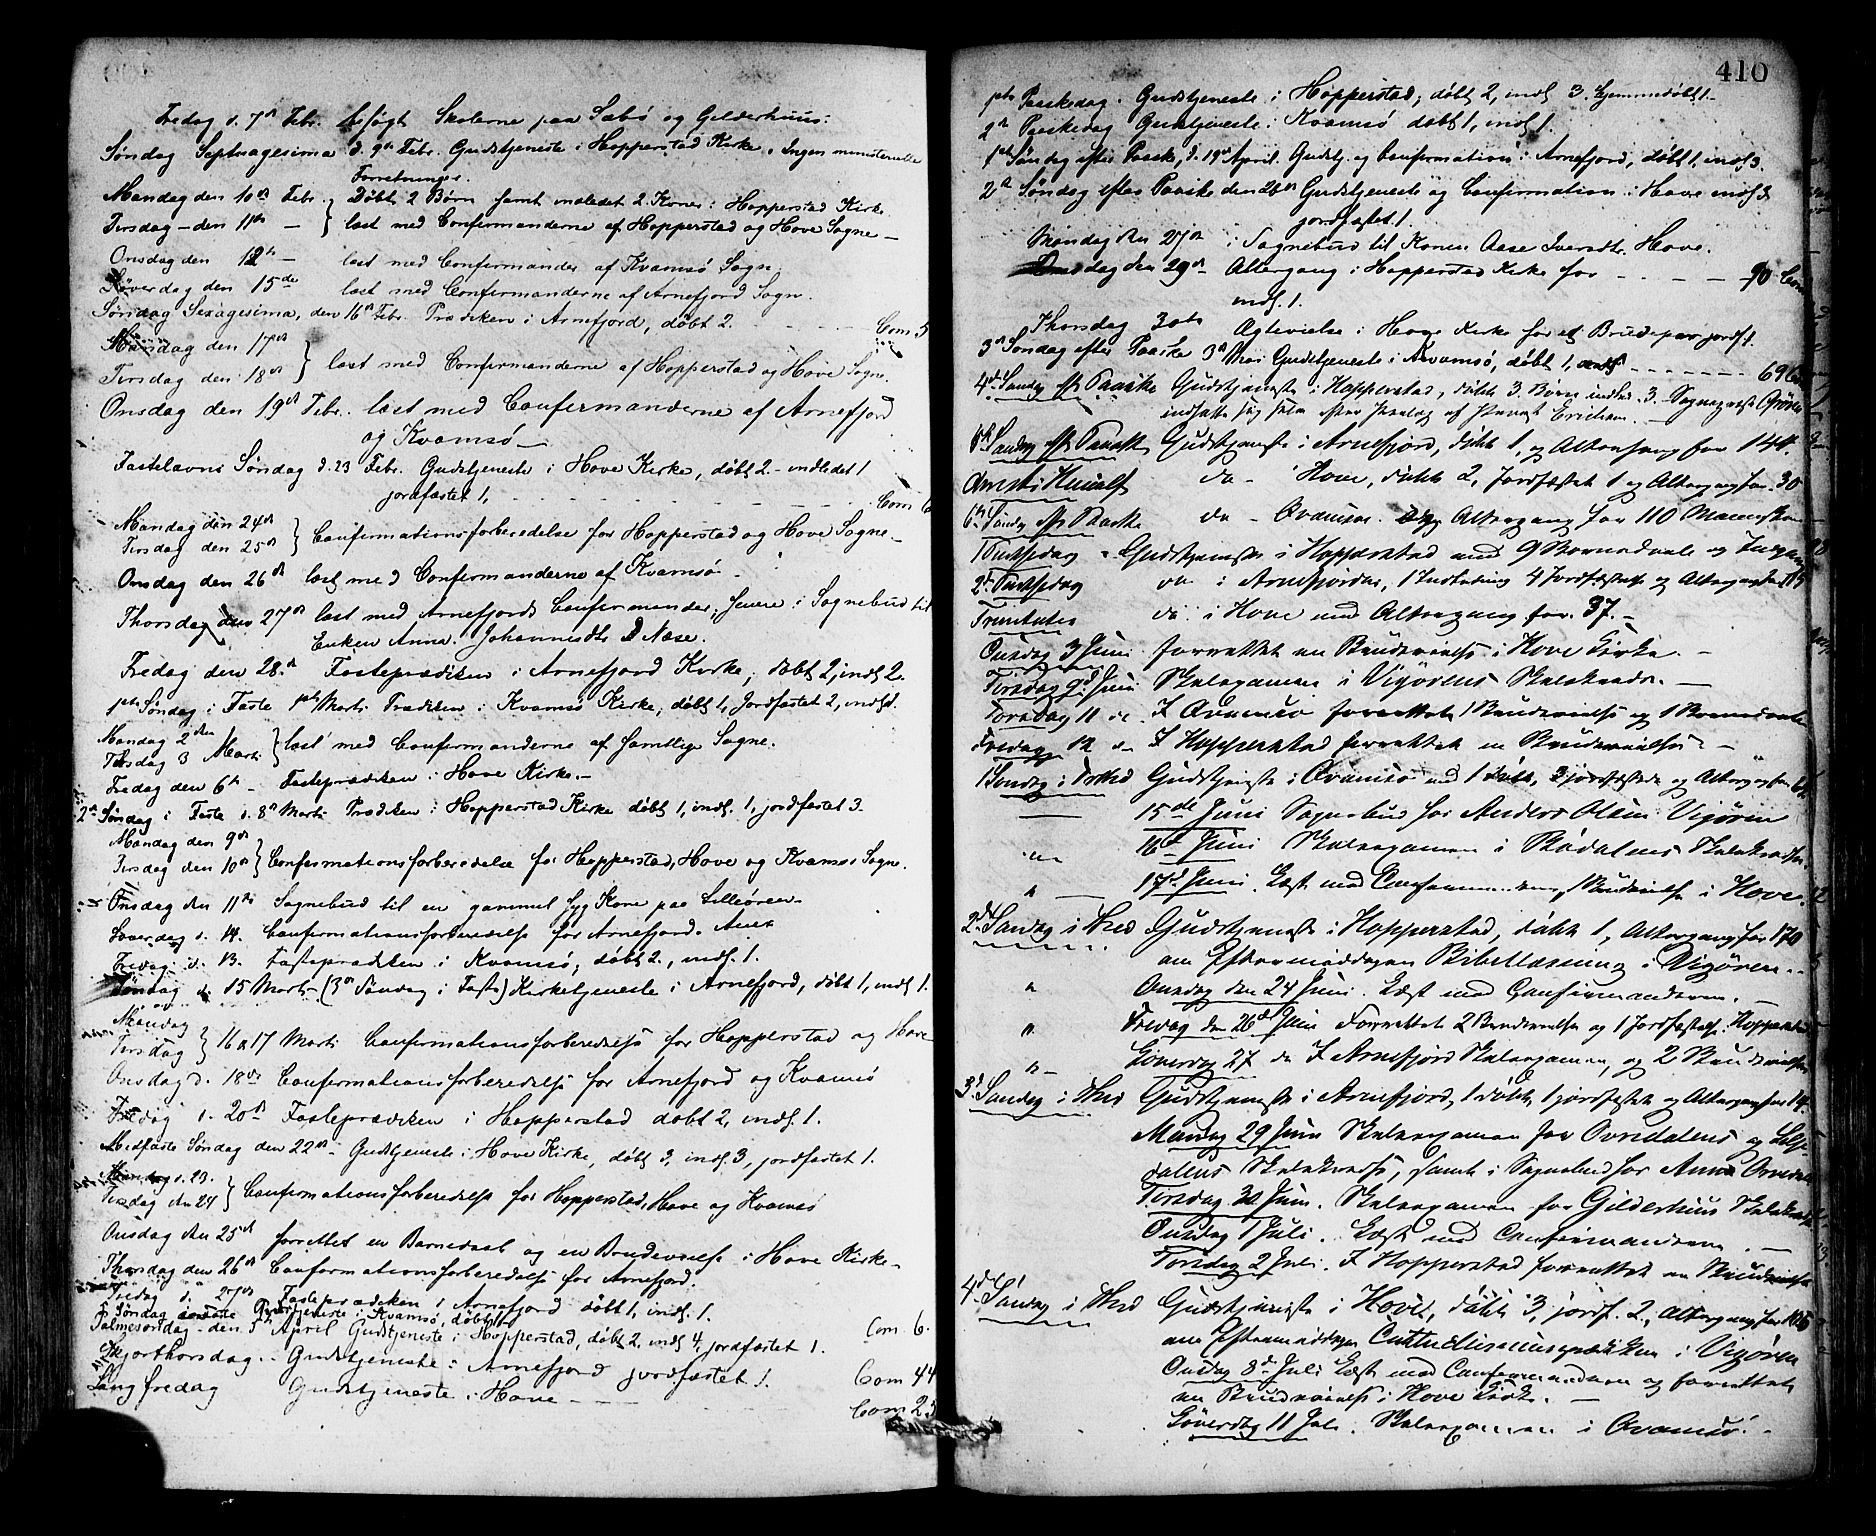 Fredag d. 7de Febr. besøgt Skolerne paa Sæbø og Gilderhuus:
Søndag Septuagesima d. 9de Febr. Gudstjeneste i Hopperstad Kirke. Ingen ministerielle
Forretninger.
Mandag den 10de Febr. Døbt 2 Børn samt indledet 2 Koner i Hopperstad Kirke
Tirsdag - den 11te - læst med Confirmanderne af Hopperstad og Hove Sogne -
Onsdag den 12te - læst med Confirmander af Kvamsø Sogn
Løverdag den 15de læst med Confirmanderne af Arnefjord Sogn.
Søndag Sexagesima, den 16de Febr. Prædiken i Arnefjord, døbt 2. Com. 5
Mandag den 17de
Tirsdag den 18de læst med Confirmanderne af Hopperstad og Hove Sogne.
Onsdag den 19de Febr. læst med Confirmanderne af Arnefjord
og Kvamsø -
Fastelavns Søndag d. 23 Febr. Gudstjeneste i Hove Kirke, døbt 2 - indledet 1
jordfæstet 1. Com 6
Mandag den 24de
Tirsdag den 25de Confirmationsforberedelse for Hopperstad og Hove Sogne -
Onsdag den 26de læst med Confirmanderne af Kvamsø -
Thorsdag den 27de læst med Arnefjords Confirmander, senere i Sognebud til
Enken Anna Johannesdtr Næse.
Fredag den 28de Fasteprædiken i Arnefjord Kirke, døbt 2, indl. 2.
1ste Søndag i Faste 1ste Marts Prædiken i Kvamsø Kirke, døbt 1, Jordfæstet 2, indl.
Mandag 2den
Tirsdag 3 Marts læst med Confirmanderne af samtlige Sogne.
Fredag den 6te - Fasteprædiken i Hove Kirke. -
2den Søndag i Faste d. 8de Marts Prædiken i Hopperstad Kirke døbt 1, indl. 1, jordfæstet 3.
Mandag den 9de
Tirsdag den 10de Confirmationsforberedelse for Hopperstad, Hove og Kvamsø Sogne.
Onsdag den 11te Sognebud til en gammel syg Kone paa Lilleøren -
Løverdag d. 14. Confirmationsforberedelse for Arnefjord.
Fredag d. 13. Fasteprædiken i Kvamsø, døbt 2, indl. 1.
Søndag d. 15 Marts (3de Søndag i Faste) Kirketjeneste i Arnefjord, døbt 1, indl 1.
Mandag
Tirsdag 16 & 17 Marts Confirmationsforberedelse for Hopperstad og Hove
Onsdag d. 18de Confirmationsforberedelse for Arnefjord og Kvamsø
Fredag d. 20de Fasteprædiken i Hopperstad døbt 2, indl. 1.
Midfaste Søndag den 22de - Gudstjeneste i Hove Kirke, døbt 3, indl. 3, jordfæstet 1.
Mandag d. 23.
Tirsdag den 24 Confirmationsforberedelse for Hopperstad, Hove og Kvamsø
Onsdag den 25de forrettet en Barnedaab og en Brudevielse i Hove Kirke -
Thorsdag den 26de Confirmationsforberedelse for Arnefjord.
Fredag d. 27de Fasteprædiken i Arnefjord døbt 1, indl. 1.
5 Søndag i Faste Gudstjeneste i Kvamsø, døbt
Palmesøndag - den 5te April Gudstjeneste i Hopperstad, døbt 2, indl. 4, jordfæstet 1. Com. 6.
Skjærthorsdag. Gudstjeneste i Arnefjord jordfæstet 1. Com 44
Langfredag Gudstjeneste i Hove - Com 25
410
1ste Paaskedag. Gudstjeneste i Hopperstad, døbt 2, indl 3. Hjemmedøbt 1 -
2den Paaskedag Gudstjeneste i Kvamsø døbt 1, indl 1.
1ste Søndag efter Paaske, d. 19de April. Gudstj. og Confirmation i Arnefjord, døbt 1, indl 3.
2den Søndag efter Paaske den 26de Gudstjeneste og Confirmation i Hove indl 3
jordfæstet 1.
Mandag den 27de i Sognebud til Konen Aase Iversdtr. Hove.
Onsdag den 29de Altergang i Hopperstad Kirke for - 90 Com
indl. 1.
Thorsdag 30te Ægtevielse i Hove Kirke for et Brudepar jordf. 1.
3de Søndag efter Paaske 3de Mai Gudstjeneste i Kvamsø, døbt 1, - 69 Com
4de Søndag eft Paaske Gudstjeneste i Hopperstad, døbt 3 Børn indled. 3. Sognepræst Grøn
indsatte sig selv efter Forslag af Provst Erichsen.
5te Søndag eft Paaske Gudstjeneste i Arnefjord, døbt 1, og Altergang for 144.
Christi Himmelf do - i Hove, døbt 2, Jordfæstet 1 og Altergang for 30
6te Søndag eft Paaske do - Qvamsø. Altergang for 110 Mennesker
1 Pintsedag - Gudstjeneste i Hopperstad med 9 Barnedaab og Ingen
2d Pintsedag do i Arnefjorden, 1 Indledning 4 Jordfæstelse og Altergang for 105
Trinitatis do. i Hove med Altergang for 37. -
Onsdag 3 Juni forrettet en Brudevielse i Hove Kirke. -
Tirsdag 9d Juni Skoleexamen i Vigørens Skolekreds. -
Torsdag 11 do. I Qvamsø forrettet 1 Brudevielse og 1 Barnedaab
Fredag 12 do I Hopperstad forrettet en Brudevielse -
1 Søndag i Tref Gudstjeneste i Qvamsø med 1 Døbt, 3 jordfæstede og Altergang for 61.
15de Juni Sognebud for Anders Olsen Vigøren
16d Juni Skoleexamen i Bødalens Skolekreds.
17d Juni. Læst med Confirmanderne, 1 Brudevielse i Hove.
2d Søndag i Tref Gudstjeneste i Hopperstad, døbt 1, Altergang for 170
om Eftermiddagen Bibellæsning i Vigøren.
Onsdag den 24 Juni. Læst med Confirmanderne. -
Fredag den 26d Juni Forrettet 2 Brudevielse og 1 Jordfæstelse Hopperstad
Løverdag 27 do I Arnefjord Skoleexamen, og 2 Brudevielser
3d Søndag i Tref Gudstjeneste i Arnefjord, 1 døbt, 1 jordfæstet og Altergang for 14.
Mandag 29 Juni Skoleexamen for Ovredalens og
dalens Skolekreds, samt i Sognebud for Anna Ovredal
Tirsdag 30 Juni. Skoleexamen for Gilderhuus Skolekreds
Onsdag 1 Juli. Læst med Confirmanderne. -
Torsdag 2 Juli. I Hopperstad forrettet en Brudevielse
4d Søndag i Tref Gudstjeneste i Hove, døbt 3, jordf. 2., Altergang for 106
om Eftermiddagen i Vigøren
Onsdag 8d Juli Læst med Confirmanderne og forrettet
en Brudevielse i Hove Kirke. -
Løverdag 11 Juli. Skoleexamen i Qvamsø. -